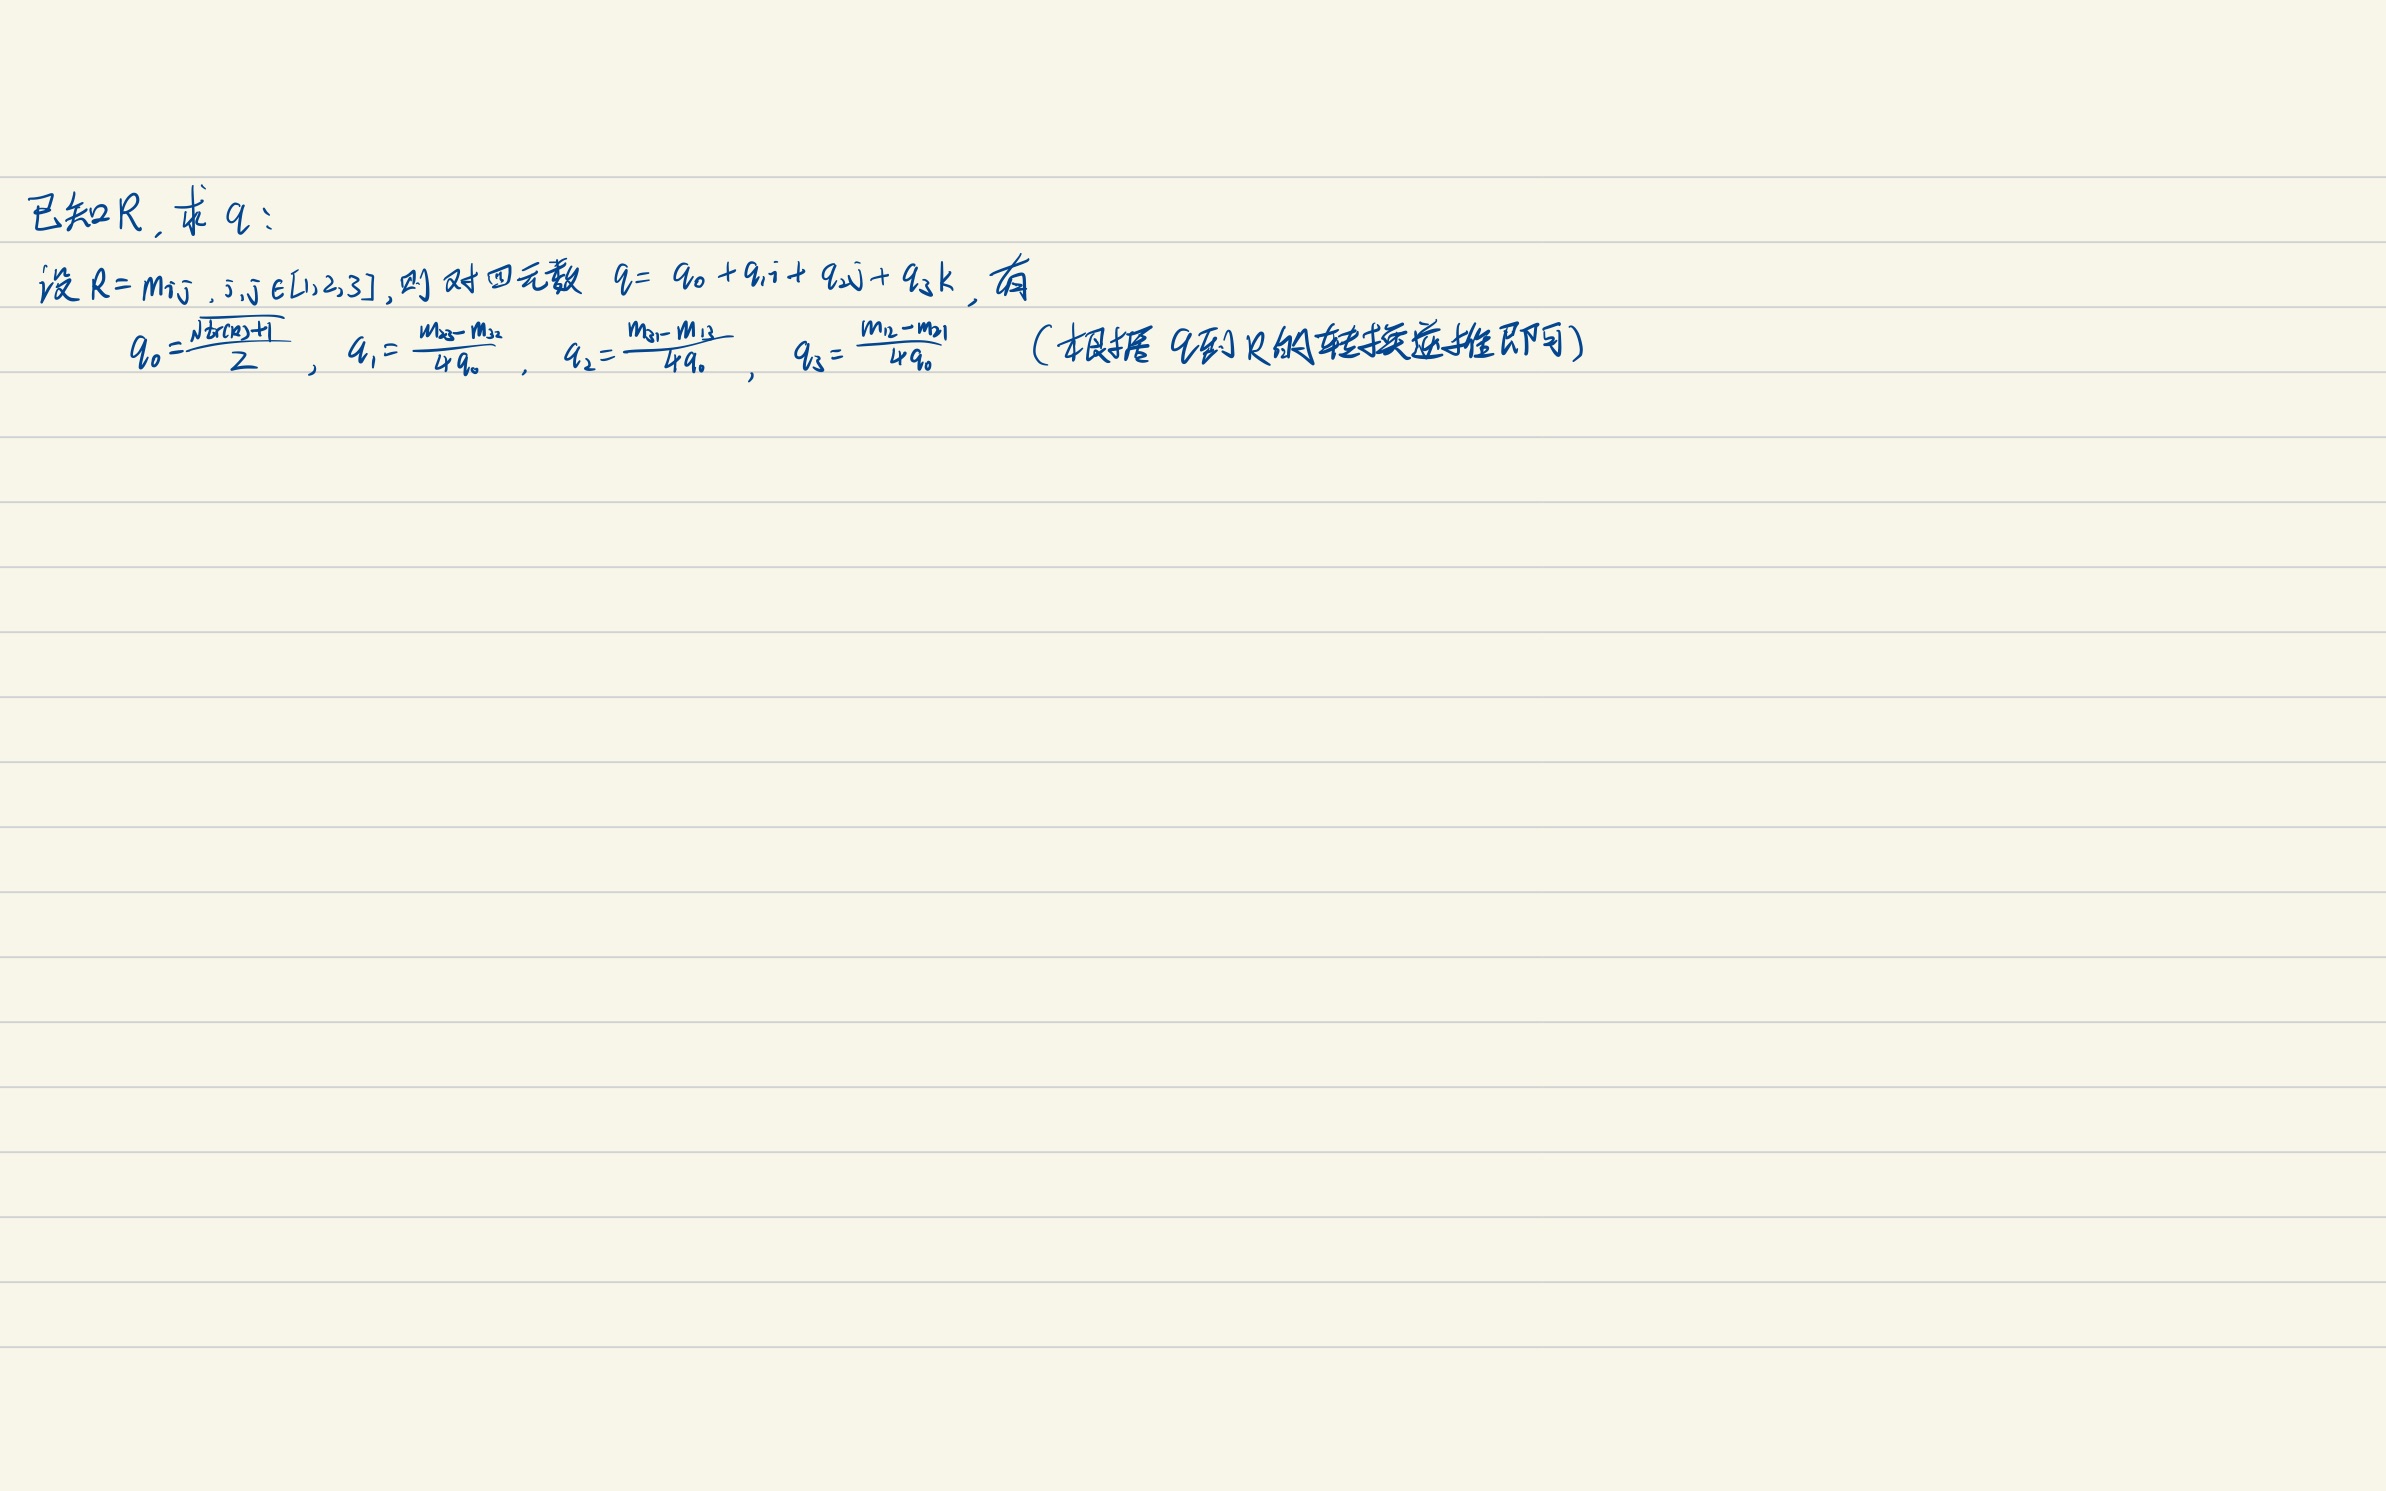 已知R,求q:
设R=mij,i,j∈[1,2,3],则对四元数 q=q₀+q₁i+q₂j+q₃k,有
q₀=√(tr(R)+1)/2, q₁=(m₂₃-m₃₂)/4q₀, q₂=(m₃₁-m₁₃)/4q₀, q₃=(m₁₂-m₂₁)/4q₀ (根据q到R的转换逆推即可)